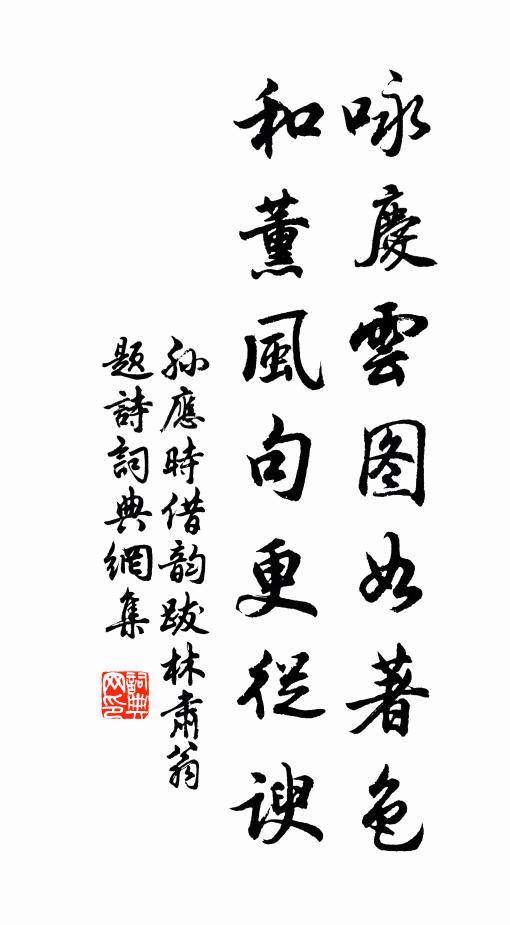 咏慶雲图如著色
和薰風句更從諛
孙應時借韵跋林肅翁
題詩詞典網集
詞典网印